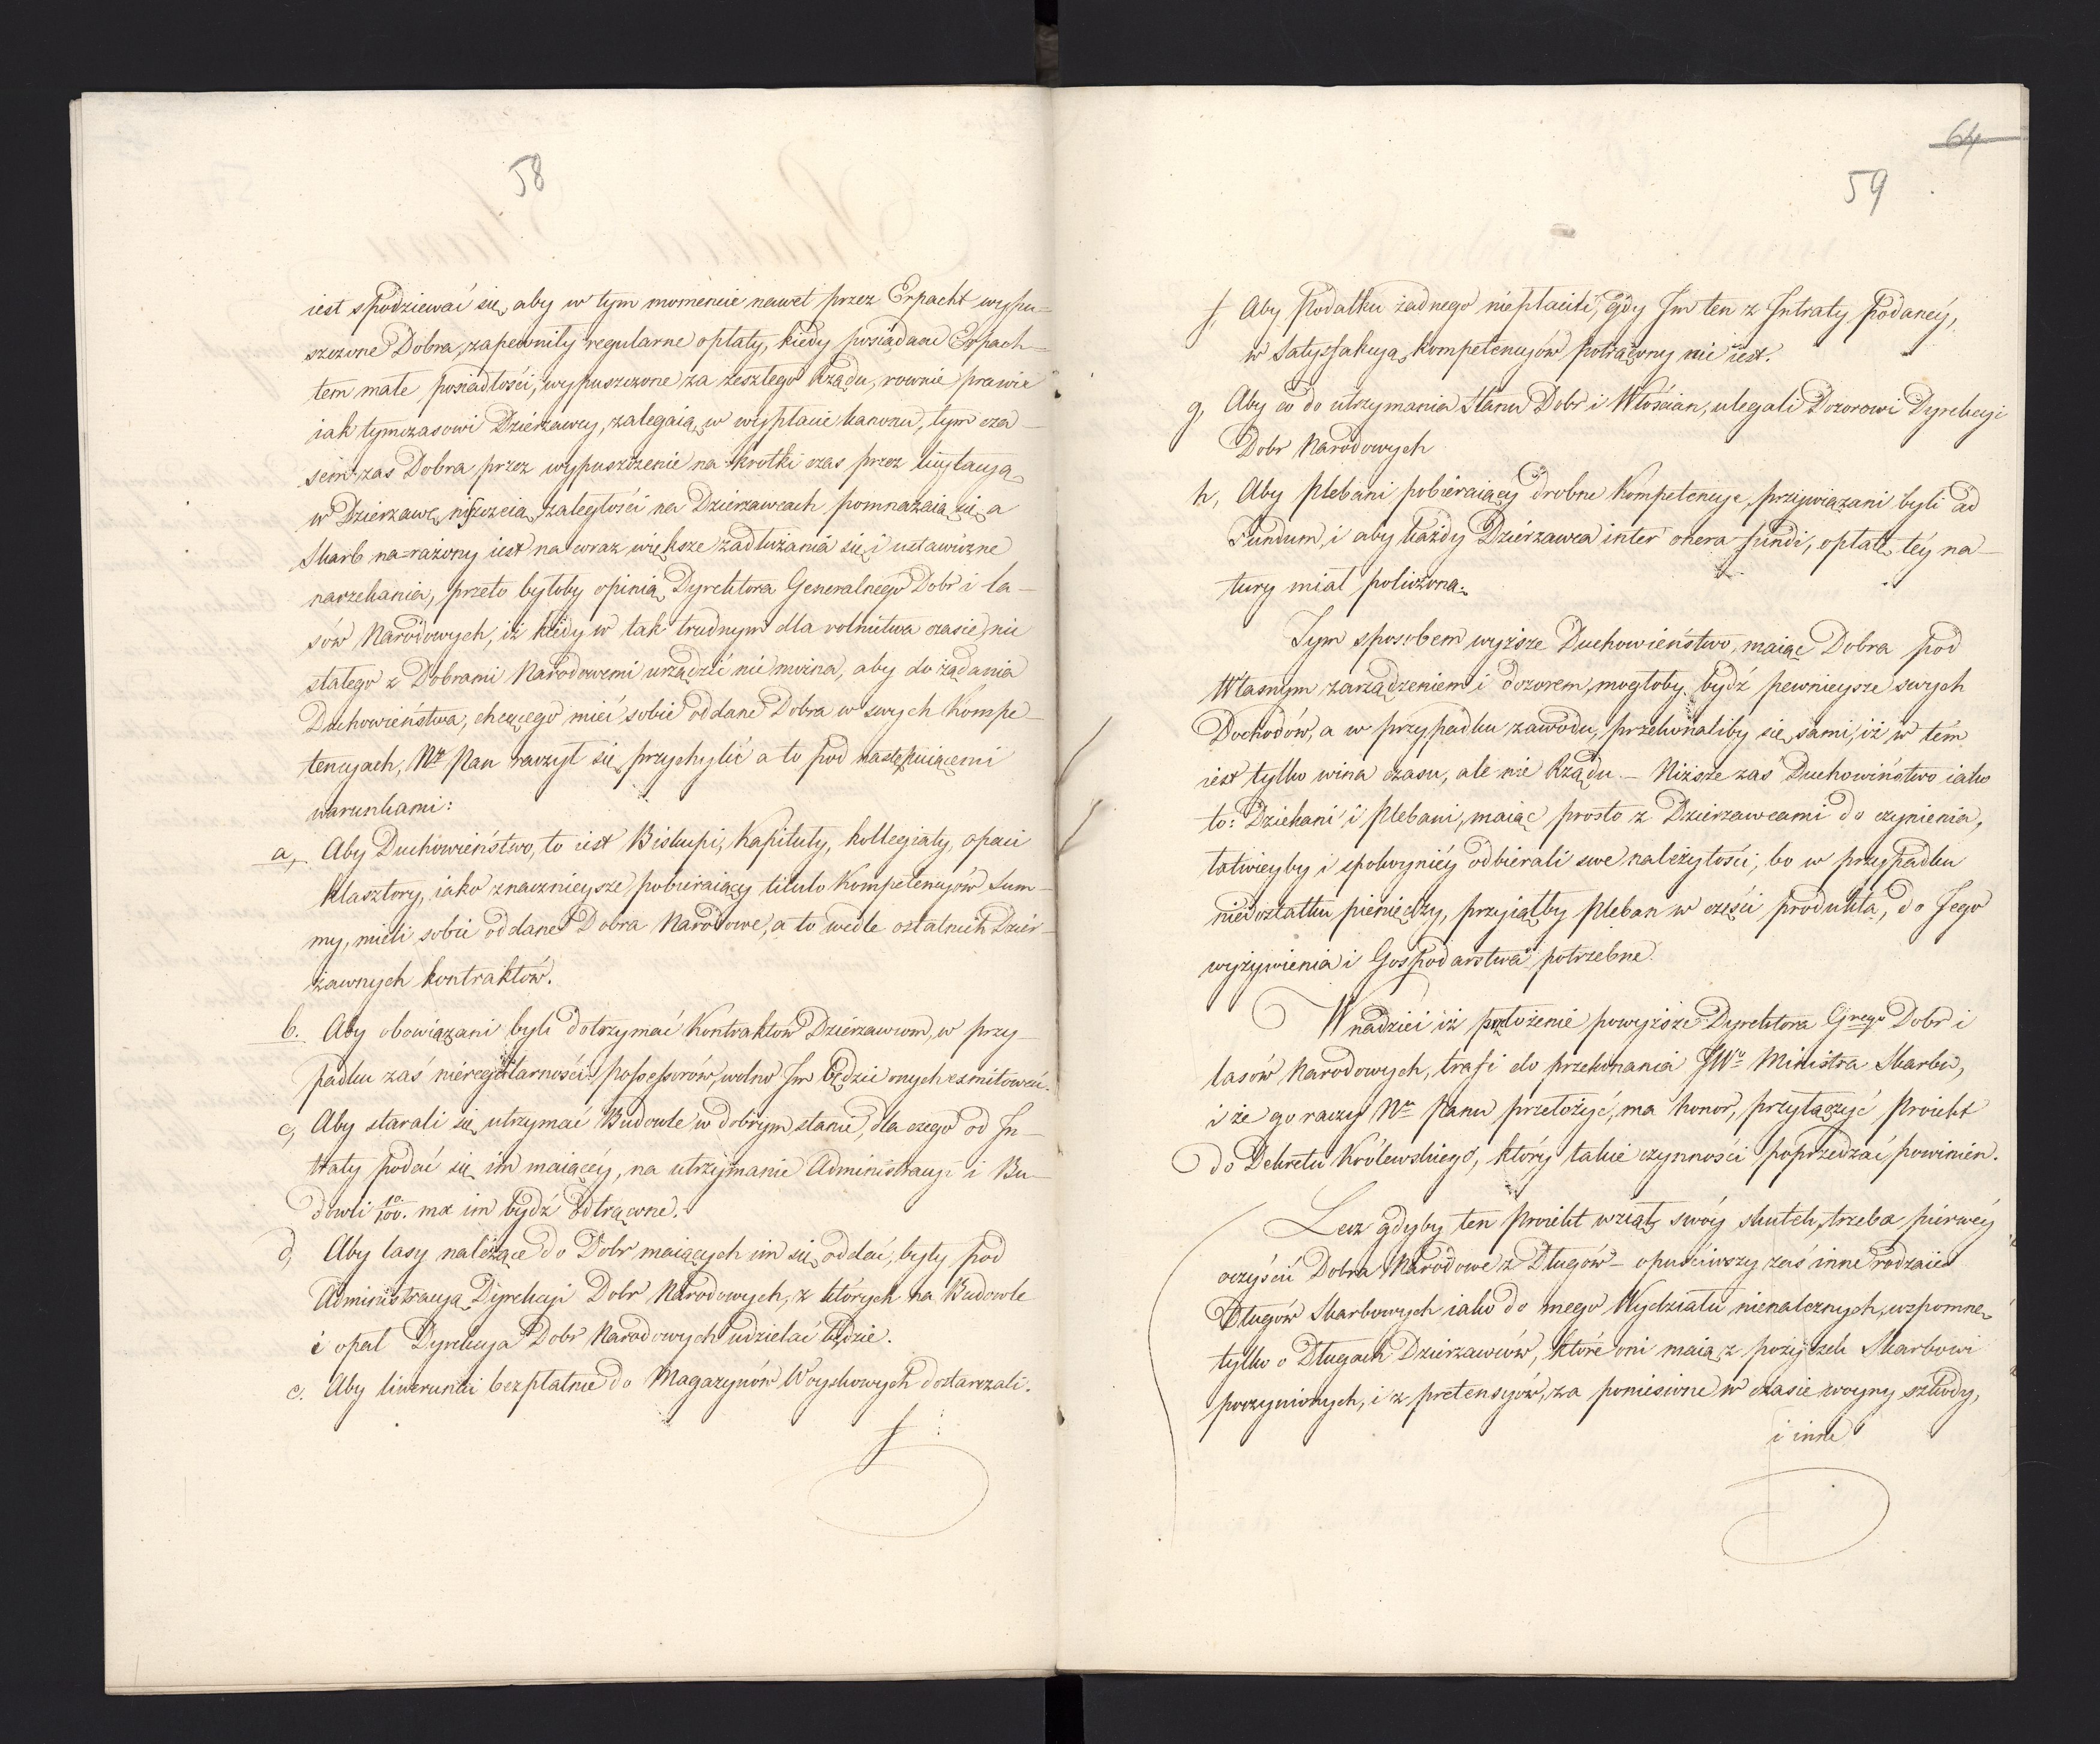 58
iest spodziewać się, aby w tym momencie nawet przez Erpacht wypu=
szczone Dobra, zapewniły regularne opłaty, kiedy posiadacze Erpach=
tem małe posiadłości, wypuszczone za zeszłego Rządu, rownie prawie
iak tymczasowi Dzierżawcy, zalegaią w wypłacie kanonu, tym cza-
sem zas Dobra przez wypuszczenie na krotki czas przez licytacyą
w Dzierzawę niszczeią, zaległości na Dzierzawcach pomnażaią się, a
Skarb na=rażony iest na coraz większe zadłużania się i ustawiczne
narzekania, przeto byłoby opinią Dyrektora Generalnego Dobr i La-
sów Narodowych, iż kiedy w tak trudnym dla rolnictwa czasie, nic
stałego z Dobrami Narodowemi urządzić nie można, aby do żądania
Duchowieństwa, chcącego mieć sobie oddane Dobra w swych Kompe-
tencyach, Nº Pan raczył się przychylić a to pod następuiącemi
warunkami:
a, Aby Duchowieństwo, to iest Biskupi, Kapituły, Kollegiaty, opaci
Klasztory, iako znacznieysze pobieraiący titulo Kompetencyów Sum-
my, mieli sobie oddane Dobra Narodowe, a to wedle ostatnich Dzier-
żawnych kontraktów.
b. Aby obowiązani byli dotrzymać Kontraktów Dzierzawcom, w przy-
padku zaś nieregularności possessorów, wolno Im będzie onych exmitować.
c, Aby starali się utrzymać Budowle w dobrym stanie, dla czego od In-
traty podać się im maiącéy, na utrzymanie Administracyi i Bu-
dowli 10/100. ma im bydź odtrącone.
d, Aby lasy należące do Dobr maiących im się oddać, były pod
Administracyą Dyrekcyi Dobr Narodowych, z których na Budowle
i opał Dyrekcya Dobr Narodowych udzielać będzie.
e. Aby liwerunki bezpłatnie do Magazynów Woyskowych dostarczali.
f
64
59
f, Aby Podatku żadnego niepłacili, gdy Im ten z Intraty podanéy,
w satysfakcyą kompetencyów potrącony nie iest.
g, Aby co do utrzymania stanu Dobr i Włościan, ulegali Dozorowi Dyrekcyi
Dobr Narodowych
h, Aby Plebani pobieraiący drobne Kompetencye, przywiązani byli ad
Fundum, i aby każdy Dzierżawca inter onera fundi, opłatę téy na-
tury miał policzoną.
Tym sposobem wyższe Duchowieństwo, maiąc Dobra pod
Własnym zarządzeniem i dozorem, mogłoby bydź pewnieysze swych
Dochodów, a w przypadku zawodu, przekonaliby się sami, iż w tém
iest tylko wina czasu, ale nie Rządu. - Niższe zas Duchowieństwo iako
to: Dziekani i Plebani, maiąc prosto z Dzierzawcami do czynienia,
łatwieyby i spokoyniéy odbierali swe należytości, bo w przypadku
niedostatku pieniędzy, przyiąłby Pleban w części produkta, do Jego
wyżywienia i Gospodarstwa potrzebne.
W nadziei iż położenie powyższe Dyrektora Gnego Dobr i
lasów Narodowych, trafi do przekonania JWº Ministra Skarbu,
i że go raczy Nu Panu przełożyć, ma honor, przyłączyć Proiekt
do Dekretu Królewskiego, który takie czynności poprzedzać powinien.
Lecz gdyby ten Proiekt wziął swóy skutek, trzeba piérwéy
oczyścić Dobra Narodowe z Długów - opuściwszy zaś inne rodzaie
Długów Skarbowych iako do mego Wydziału nienależnych, wspomnę
tylko o Długach Dzierzawców, które oni maią z pożyczek Skarbowi
poczynionych, i z pretensyów, za poniesione w czasie woyny szkody,
i inne